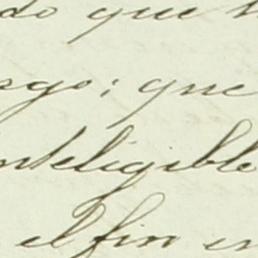 do que
sgo; que
inteligible
el fin en